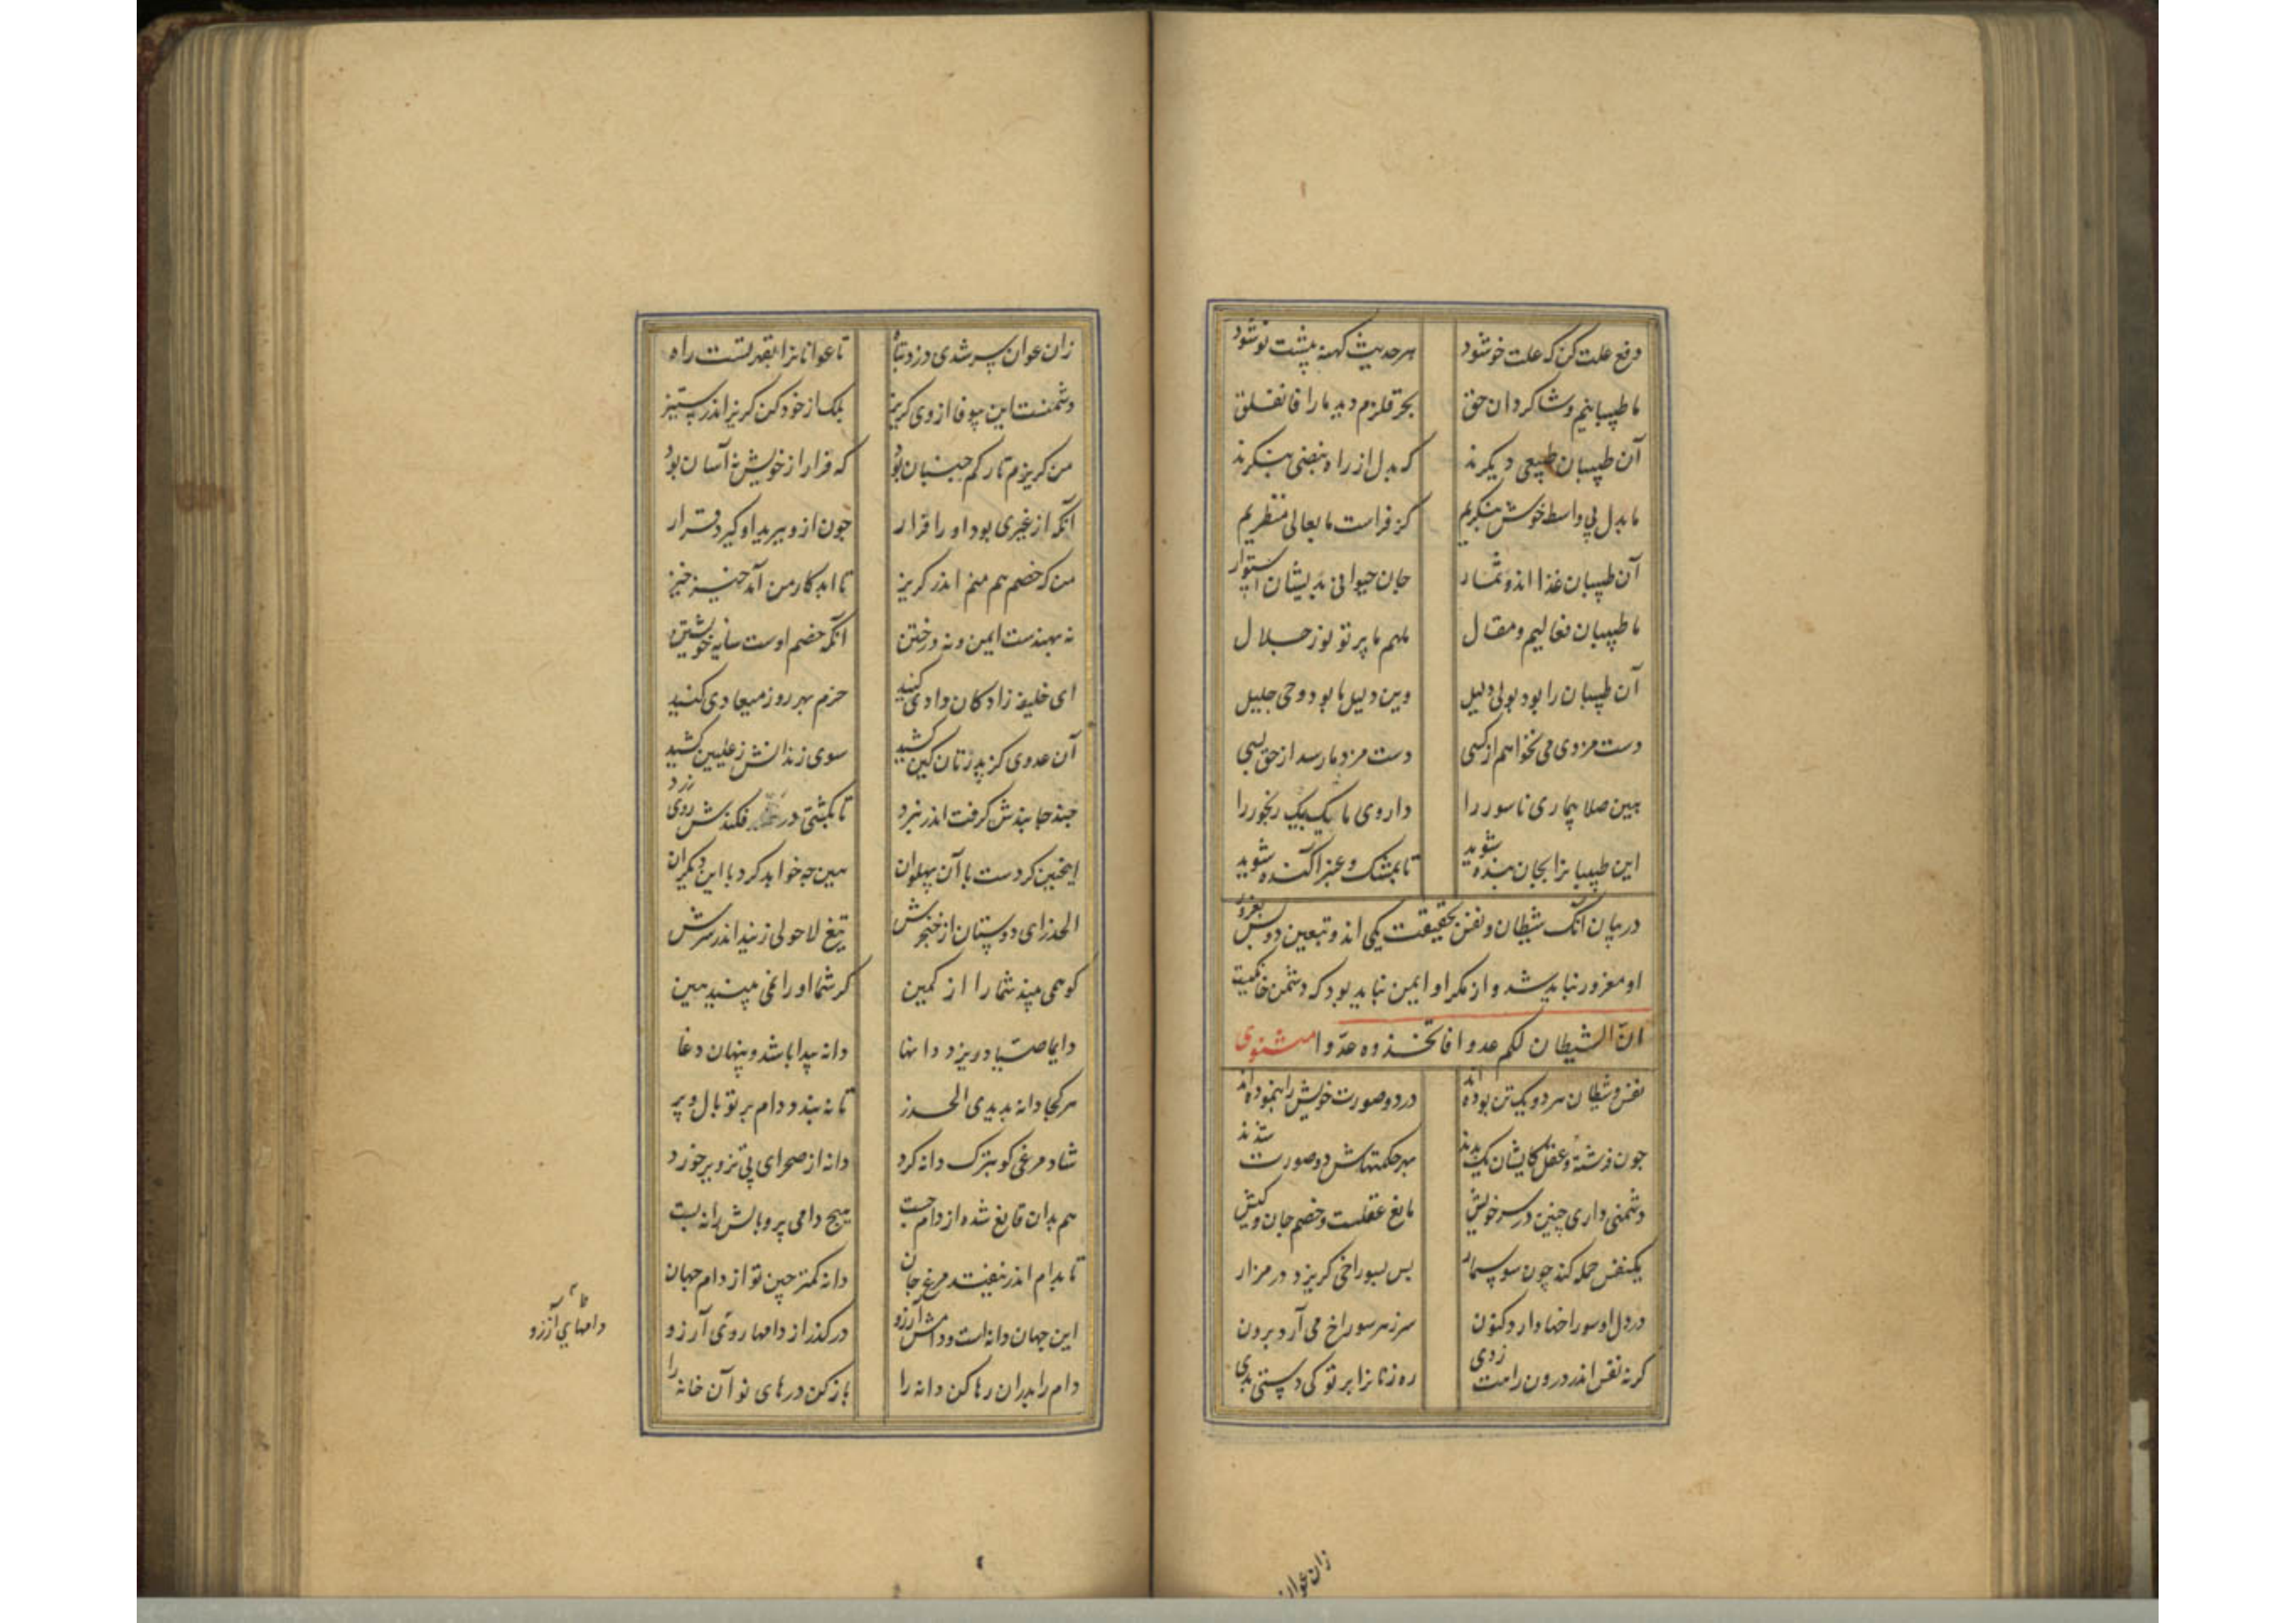 دفع علت کن که علت خو شود هر حدیث کهنه پیشت نو شود
ما طبیبانیم و شاکردان حق بحر قلزم دید ما را فانفلق
آن طبیبان طبیعی دیکرند که بدل از راه نبضی بنکرند
ما بدل بی واسطه خوش بنکریم کز فراست ما بعالی منظریم
آن طبیبان غذا اند و ثمار جان حیوانی بدیشان استوار
ما طبیبان فعالیم و مقال ملهم ما پرتو نور جلال
آن طبیبان را بود بولی دلیل وین دلیل ما بود وحی جلیل
دست مزدی می نخواهم از کسی دست مزد ما رسد از حق بسی
هین صلا بیماری ناسور را داروی ما یک بیک رنجور را
این طبیبانرا بجان بنده شوید تا بمشک و عنبر آکنده شوید
در بیان آنک شیطان و نفس بحقیقت یکی اند و تبعین دوس بغرور
او مغرور نباید شد و از مکر او ایمن نباید بود که دشمن خانکیست
ان الشیطان لکم عدوا فاتخذوه عدوا مثنوی
نفس و شیطان هر دو یک تن بوده اند در دو صورت خویش را بنموده اند
جون فرشته و عقل کایشان یک بدند بهر حکمتهاش دو صورت شدند
دشمنی داری چنین در سر خویش مانع عقلست و خصم جان و کیش
یکنفس حمله کند چون سوسمار بس بسوراخی کریزد در مزار
در دل او سوراخها دارد کنون سر ز هر سوراخ می آرد برون
کرنه نفس اندر درون راهت زدی ره زنانرا بر تو کی دستی بدی
زان عوان
زان عوان پر سر شدی دزد و تباه تا عوانانرا بقهر تست راه
دشمنست این بیوفا از وی کریز بلک از خود کن کریز اندر ستیز
من کریزم تا رکم جنبان بود که فرار از خویش نه آسان بود
آنکه از غیری بود او را فرار جون ازو ببرید او کیرد قرار
من که خصمم هم منم اندر کریز تا ابد کار من آمد خیز خیز
نه بهندست ایمن و نه در ختن آنکه خصم اوست سایه خویشتن
ای خلیفه زادکان دادی کنید حزم بهر روز میعادی کنید
آن عدوی کز پدرتان کین کشید سوی زندانش ز علیین کشید
جند جا بندش کرفت اندر نبرد تا بکشتی در فکندش روی زرد
اینجنین کردست با آن پهلوان هین جه خواهد کرد با این دیکران
الحذر ای دوستان از خنجرش تیغ لا حولی زنید اندر سرش
کو همی بیند شما را از کمین کر شما او را نمی بینید هین
دایما صیاد ریزد دانها دانه پیدا باشد و پنهان دغا
هر کجا دانه بدیدی الحذر تا نه بندد دام بر تو بال و پر
شاد مرغی کو بترک دانه کرد دانه از صحرای بی تزویر خورد
هم بدان قانع شد و از دام جست هیج دامی پر و بالش را نه بست
تا بدام اندر نیفتد مرغ جان دانه کمتر چین تو از دام جهان
این جهان دانه است و دامش آرزو در کذر از دامها روی آرزو
دام را بدران رها کن دانه را باز کن درهای نو آن خانه را
دامهای آرزو